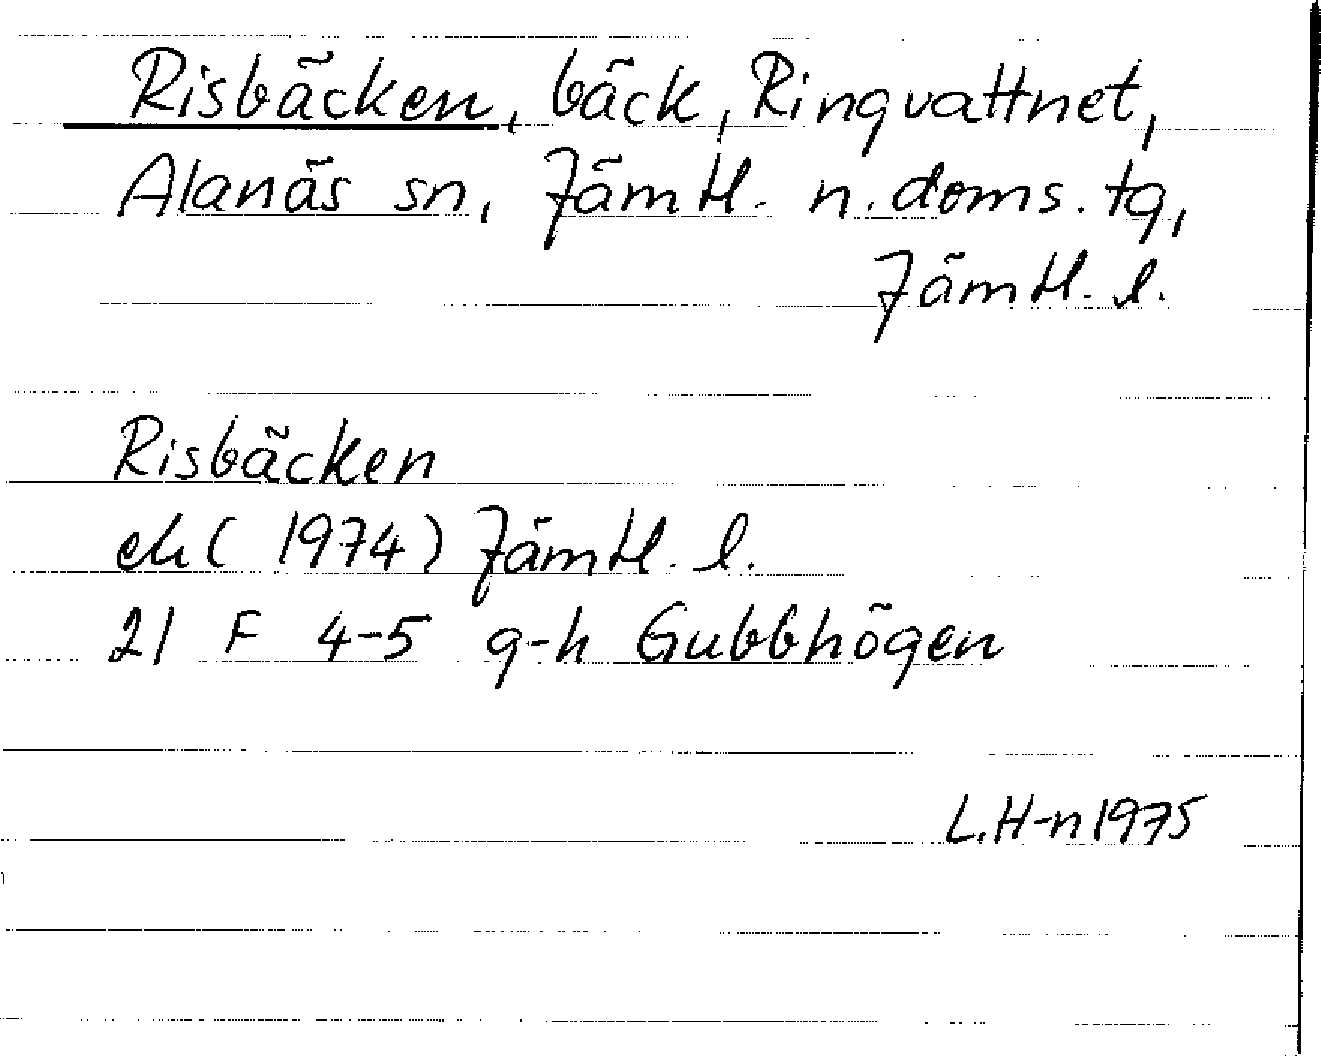 Risbäcken, bäck, Ringvattnet,
Alanäs sn, Jämtl. n. doms. tg,
Jämtl. l.
Risbäcken
ek (1974) Jämtl. l.
21 F 4-5 g-h Gubbhögen
L.H-n 1975